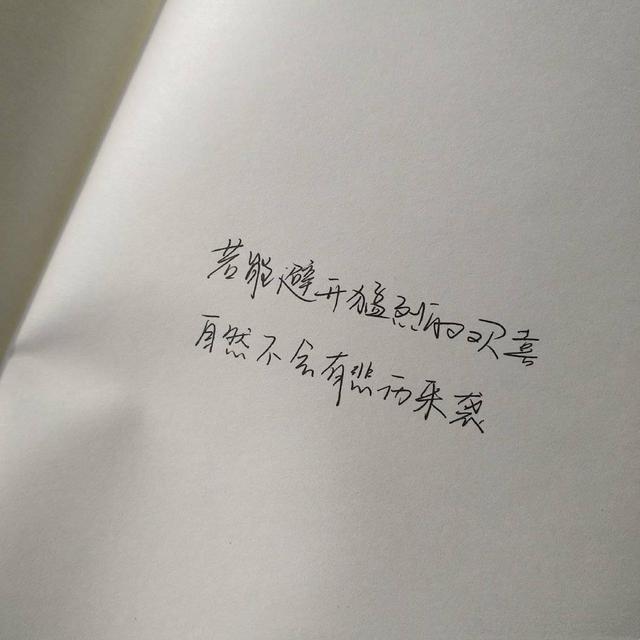 若能避开猛烈的欢喜
自然不会有悲痛来袭